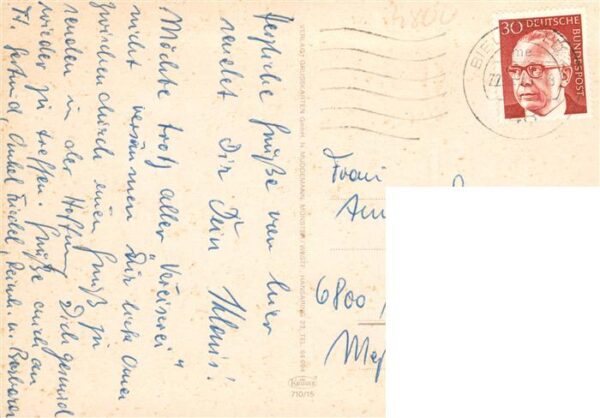 Herzliche Grüße von hier
sendet Dir Dein Klaus!
Möchte trotz aller "Vereiserei"
nicht versäumen Dir liebe Omi
zwischendurch einen Gruß zu
senden in der Hoffnung Dich gesund
wieder zu treffen. Grüße auch an
Onkel Friedel, u. Barbara
VERLAG: GRUSSKARTEN GMBH, H. MUDDEMANN, MÜNSTER/WESTF.
KRÜGER
710/15
4800
BIEL
30 DEUTSCHE
BUNDESPOST
Frau
6800